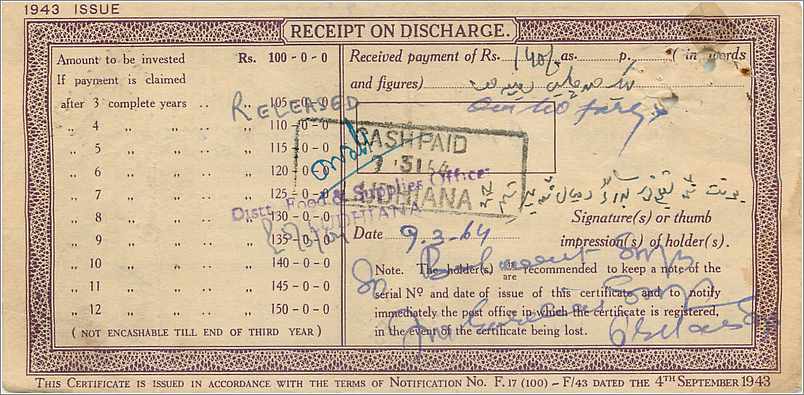 1943 ISSUE
RECEIPT ON DISCHARGE.
Amount to be invested Rs. 100-0-0
If payment is claimed
after 3 complete years .. .. 105-0-0
„ 4 „ „ .. „ 110-0-0
„ 5 „ „ .. „ 115-0-0
„ 6 „ „ .. „ 120-0-0
„ 7 „ „ .. „ 125-0-0
„ 8 „ „ .. „ 130-0-0
„ 9 „ „ .. „ 135-0-0
„ 10 „ „ .. „ 140-0-0
„ 11 „ „ .. „ 145-0-0
„ 12 „ „ .. „ 150-0-0
(NOT ENCASHABLE TILL END OF THIRD YEAR)
RELEASED
CASH PAID
LUDHIANA
Distt. Food & Supplies Officer
LUDHIANA
Received payment of Rs. 140/- as. p. (in words
and figures)
Signature(s) or thumb
impression(s) of holder(s).
Date 9-3-64
Note. The holder(s) is/are recommended to keep a note of the
serial Nº and date of issue of this certificate and to notify
immediately the post office in which the certificate is registered,
in the event of the certificate being lost.
THIS CERTIFICATE IS ISSUED IN ACCORDANCE WITH THE TERMS OF NOTIFICATION NO. F.17 (100) – F/43 DATED THE 4TH SEPTEMBER 1943